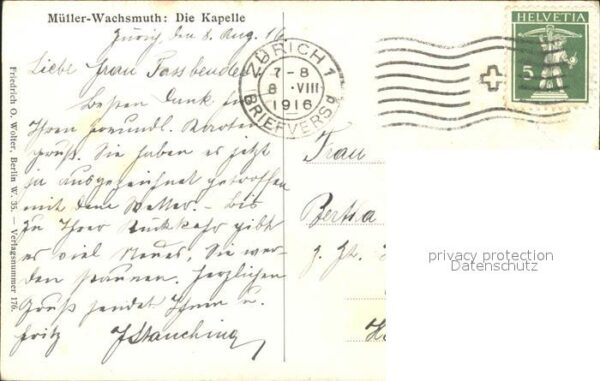 Müller-Wachsmuth: Die Kapelle
Zürich den 8. Aug. 16
Liebe Frau Fassbender
Besten Dank für
Ihren freundl. Karten
gruß. Sie haben es jetzt
ja ausgezeichnet getroffen
mit dem Wetter. – Bis
zu Ihrer Rückkehr gibt
es viel Neues, Sie wer-
den staunen. Herzlichen
Gruß sendet Ihnen u.
Fritz
Friedrich O. Wolter, Berlin W. 35. — Verlagsnummer 176.
ZÜRICH 1
7-8
8. VIII
1916
BRIEFVERSd
HELVETIA
5
Frau
Bertha
privacy protection
Datenschutz